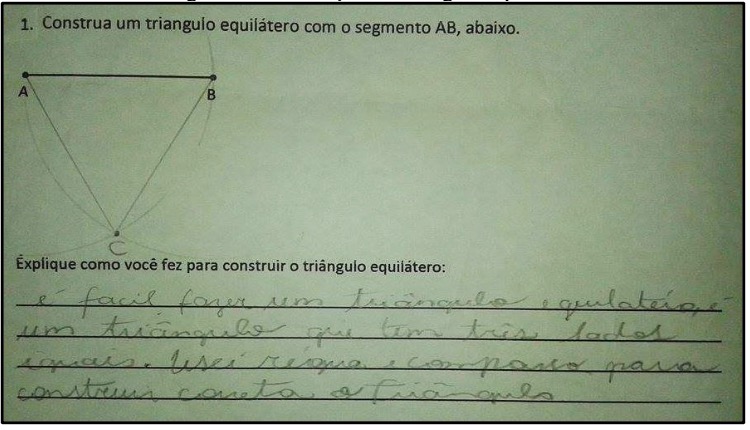 1. Construa um triangulo equilátero com o segmento AB, abaixo.
A
B
C
Explique como você fez para construir o triângulo equilátero:
é facil fazer um triângulo equilateio, é
um triângulo que tem três lados
iguais. Usei regua e compasso para
construir coreta o triângulo